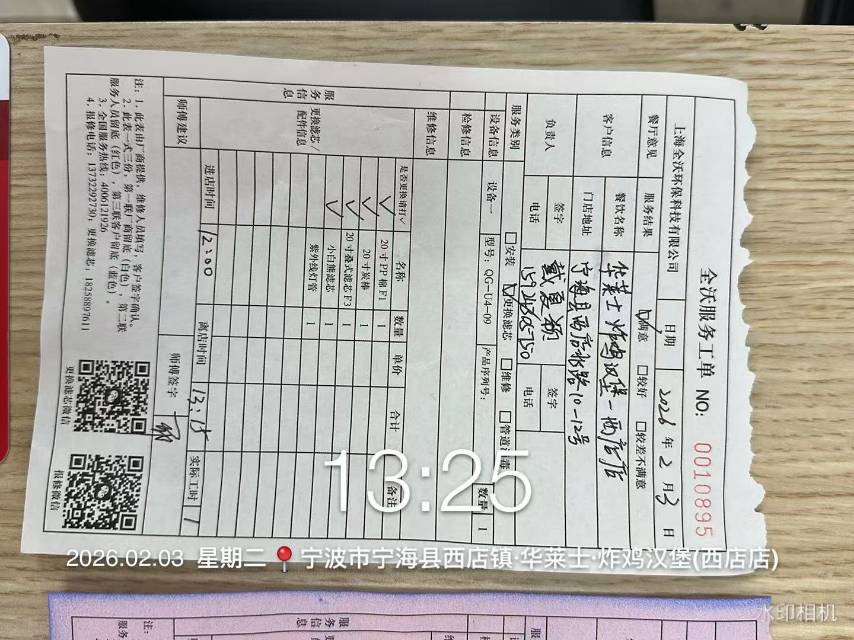 全沃服务工单 NO: 0010895
上海全沃环保科技有限公司 日期 2026 年 2 月 3 日
餐厅意见 服务结果 ☑满意 □较好 □较差不满意
客户信息 餐饮名称 华莱士炸鸡汉堡-西店店
门店地址 宁海县西店水路10-12号
负责人 签字 签字
电话 电话
服务类别 □安装 ☑更换滤芯 □维修 □管道消毒
设备信息 设备一 型号：QG-U4-09 产品序列号： 数量 1
检修信息
维修信息
服务信息
更换滤芯/配件信息
是否更换请打√ 名称 数量 单价 合计 备注
√ 20 寸 PP 棉 F1 1
√ 20 寸炭棒 1
√ 20 寸叠式滤芯 F3 1
√ 小白熊滤芯 1
紫外线灯管 1
进店时间 12:00 离店时间 13:15 实际工时 1
师傅建议 师傅签字
注：1、此表由厂商提供，维修人员填写，客户签字确认。
2、此表一式三份，第一联厂商留底（白色），第二联
服务人员留底（红色），第三联客户留底（蓝色）。
3、全国服务热线：4006121926
4、报修电话：13732292730，更换滤芯：18258897611
更换滤芯微信
报修微信
13:25
2026.02.03 星期二 宁波市宁海县西店镇·华莱士·炸鸡汉堡(西店店)
水印相机
注：
服务
服
务
信